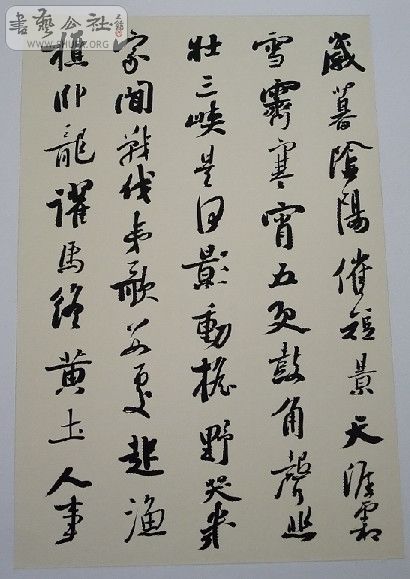 歲暮陰陽催短景天涯霜
雪霽寒宵五更鼓角聲悲
壯三峽星河影動搖野哭幾
家聞戰伐夷歌處起漁
樵卧龍躍馬終黃土人事
書藝公社
WWW.SHUFA.ORG